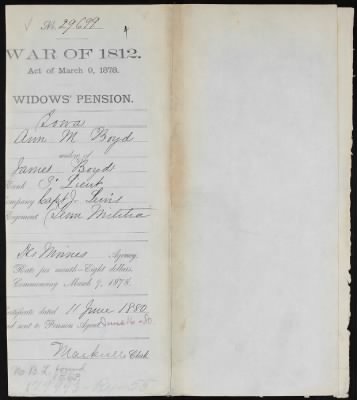 No. 29699
WAR OF 1812.
Act of March 9, 1878.
WIDOWS' PENSION.
Iowa
Ann M Boyd
widow of
James Boyd
Rank Lieut
Company Capt J. Lewis
Regiment Tenn Militia
Des Moines Agency.
Rate per month—Eight dollars.
Commencing March 9, 1878.
Certificate dated 11 June 1880
and sent to Pension Agent June 16-80
Clerk.
No B. L. found